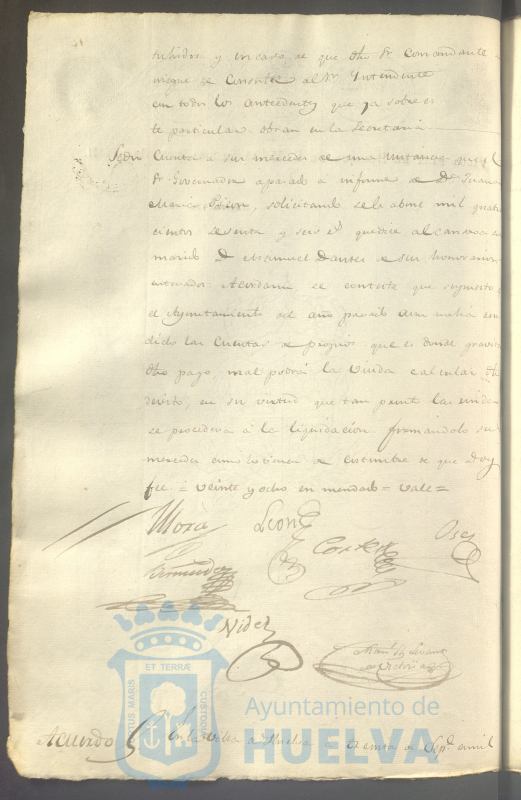 tuladora y en caso de que dho Sr Comandante
niegue se consulte al Sr Yntendente
con todos los antecedentes que ya sobre es
te particular obran en la Secretaria
Cuenta a sus mercedes de una instancia que el
Sr Governador a pasado a informe de Da Juana
Maria, solicitando se le abone mil quatro
cientos sesenta y seis rs que dice alcansava su
marido Dn Manuel de sus honorarios
Acordaron se conteste que respecto a
el Ayuntamiento del año pasado aun no ha ren
dido las Cuentas de propios que es donde gravita
dho pago, mal podrá la Viuda calcular dho
devito, en su virtud que tan pronto las rinda
se procederá a la liquidacion firmandolo sus
mercedes como lo tienen de costumbre de que doy
fee = veinte y ocho en mendado = vale =
Mora Leon
Cortes
Bermudez
Videz
ET TERRÆ
PORTUS MARIS
CUSTODIA
Ayuntamiento de
HUELVA
Acuerdo En la Villa de Huelva a treinta de Sepe. de mil